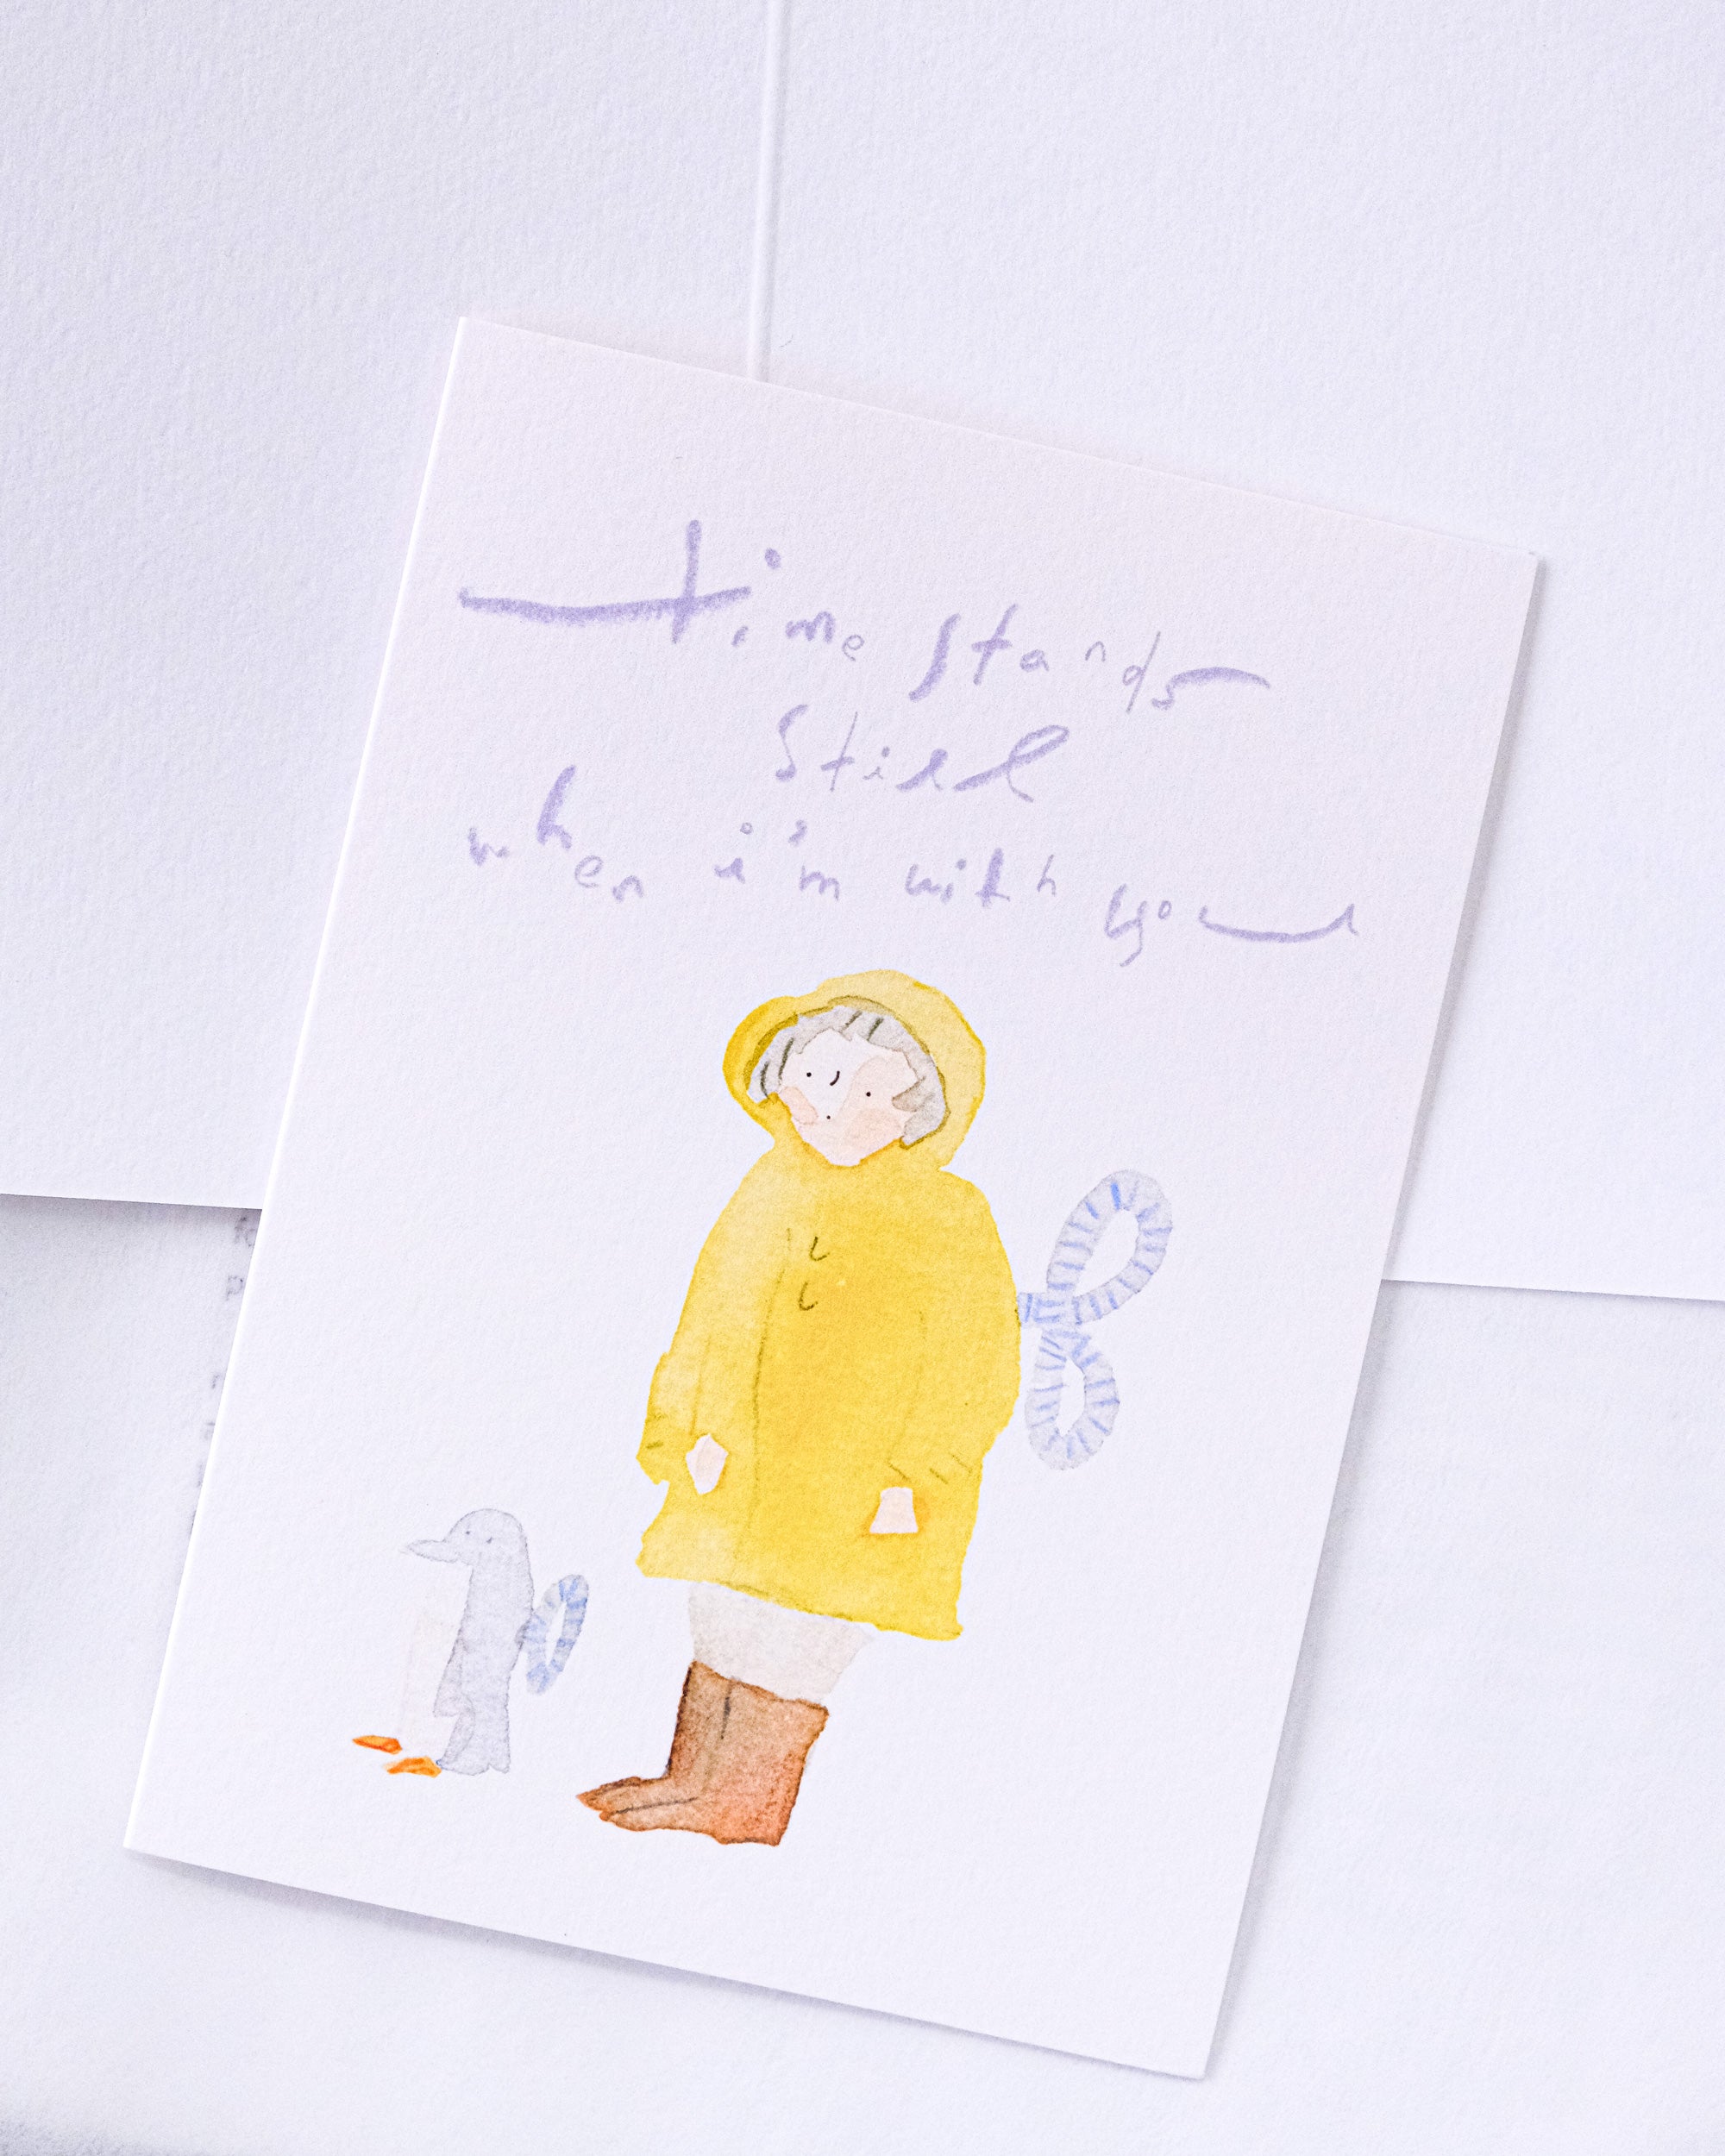 time stands
still
when i'm with you